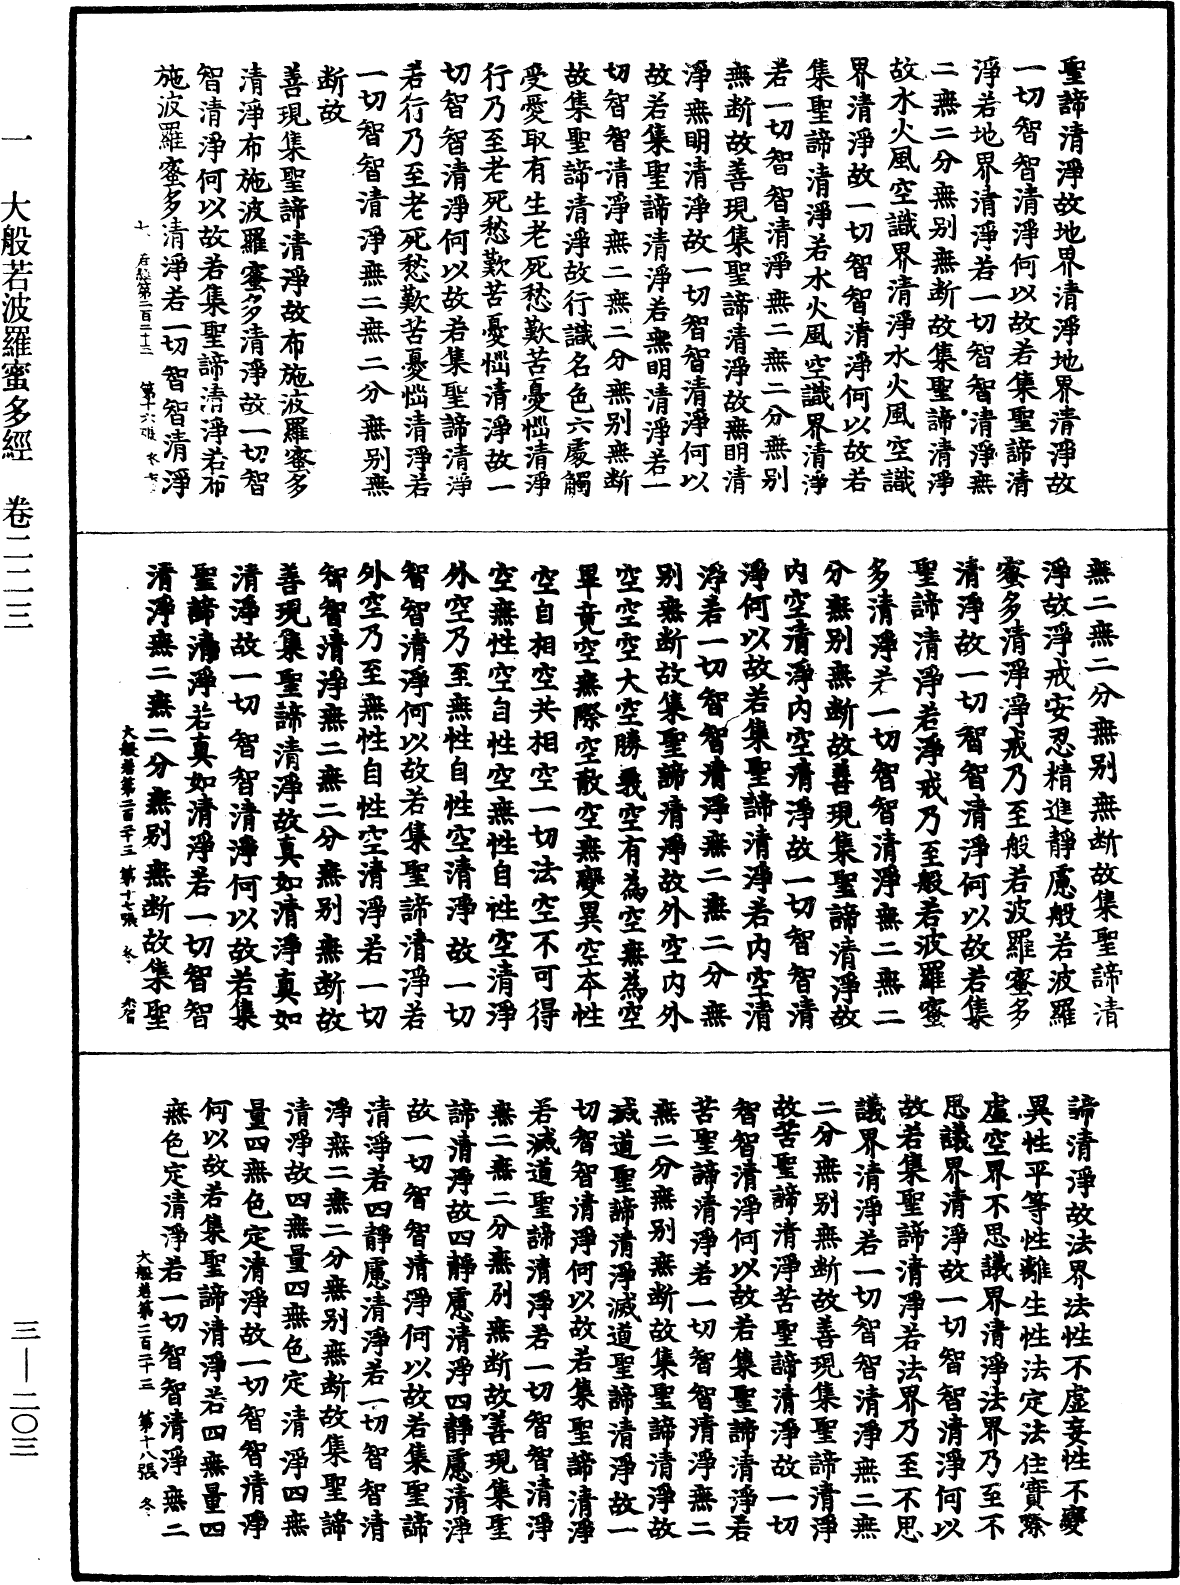 聖諦清淨故地界清淨地界清淨故
一切智智清淨何以故若集聖諦清
淨若地界清淨若一切智智清淨無
二無二分無別無断故集聖諦清淨
故水火風空識界清淨水火風空識
界清淨故一切智智清淨何以故若
集聖諦清淨若水火風空識界清淨
若一切智智清淨無二無二分無別
無断故善現集聖諦清淨故無明清
淨無明清淨故一切智智清淨何以
故若集聖諦清淨若無明清淨若一
切智智清淨無二無二分無別無断
故集聖諦清淨故行識名色六處觸
受愛取有生老死愁歎苦憂惱清淨
行乃至老死愁歎苦憂惱清淨故一
切智智清淨何以故若集聖諦清淨
若行乃至老死愁歎苦憂惱清淨若
一切智智清淨無二無二分無別無
断故
善現集聖諦清淨故布施波羅蜜多
清淨布施波羅蜜多清淨故一切智
智清淨何以故若集聖諦清淨若布
施波羅蜜多清淨若一切智智清淨
第十六張
無二無二分無別無断故集聖諦清
淨故淨戒安忍精進靜慮般若波羅
蜜多清淨淨戒乃至般若波羅蜜多
清淨故一切智智清淨何以故若集
聖諦清淨若淨戒乃至般若波羅蜜
多清淨若一切智智清淨無二無二
分無別無断故善現集聖諦清淨故
內空清淨內空清淨故一切智智清
淨何以故若集聖諦清淨若內空清
淨若一切智智清淨無二無二分無
別無断故集聖諦清淨故外空內外
空空空大空勝義空有為空無為空
畢竟空無際空散空無變異空本性
空自相空共相空一切法空不可得
空無性空自性空無性自性空清淨
外空乃至無性自性空清淨故一切
智智清淨何以故若集聖諦清淨若
外空乃至無性自性空清淨若一切
智智清淨無二無二分無別無断故
善現集聖諦清淨故真如清淨真如
清淨故一切智智清淨何以故若集
聖諦清淨若真如清淨若一切智智
清淨無二無二分無別無断故集聖
大般若第二百二十三 第十七張 冬
諦清淨故法界法性不虛妄性不變
異性平等性離生性法定法住實際
虛空界不思議界清淨法界乃至不
思議界清淨故一切智智清淨何以
故若集聖諦清淨若法界乃至不思
議界清淨若一切智智清淨無二無
二分無別無断故善現集聖諦清淨
故苦聖諦清淨苦聖諦清淨故一切
智智清淨何以故若集聖諦清淨若
苦聖諦清淨若一切智智清淨無二
無二分無別無断故集聖諦清淨故
滅道聖諦清淨滅道聖諦清淨故一
切智智清淨何以故若集聖諦清淨
若滅道聖諦清淨若一切智智清淨
無二無二分無別無断故善現集聖
諦清淨故四靜慮清淨四靜慮清淨
故一切智智清淨何以故若集聖諦
清淨若四靜慮清淨若一切智智清
淨無二無二分無別無断故集聖諦
清淨故四無量四無色定清淨四無
量四無色定清淨故一切智智清淨
何以故若集聖諦清淨若四無量四
無色定清淨若一切智智清淨無二
大般若第二百二十三 第十八張 冬
一 大般若波羅蜜多經 卷二二三
三—二〇三